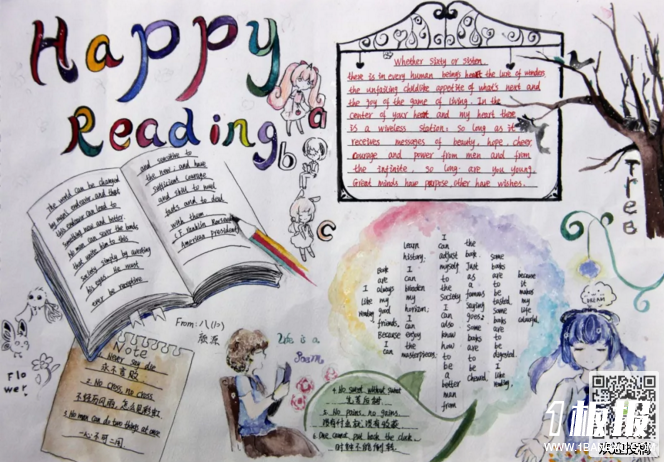 Happy
Reading
a
b
c
Whether sixty or sixteen
there is in every human being's heart the lure of wonders
the unfailing childlike appetite of what's next and
the joy of the game of living. In the
center of your heart and my heart there
is a wireless station, so long as it
receives messages of beauty, hope, cheer
courage and power from men and from
the infinite, so long are you young.
Great minds have purpose other have wishes.
Tree
The world can be changed
by man's endeavor, and that
this endeavor can lead to
something new and better.
No man can sever the bonds
that unite him to this
society simply by averting
his eyes. He must
ever be receptive
and sensitive to
the new; and have
sufficient courage
and skill to novel
facts and to deal
with them
American president
From: 八(1)
Note
1. Never say die.
永不言败
2. No cross, no crown.
不经历风雨,怎么见彩虹
3. No man can do two things at once
一心不可二用
Flower
life is a
Poem
4. No sweet without sweat
先苦后甜
5. No pains, no gains.
没有付出就没有收获
6. One cannot put back the clock.
时钟不能倒转
Book are I always like my good friends. Because I can
learn history. I can broaden my horizon; I can enjoy the masterpieces.
I can adjust myself to the society I can also know how to be a better man from
the book. Just as a famous saying goes: Some books are to be chewed,
some books are to be tasted, some books are to be digested. I like reading,
because it makes my life colourful.
DREAM
1板报
WWW.1BANBAO.COM